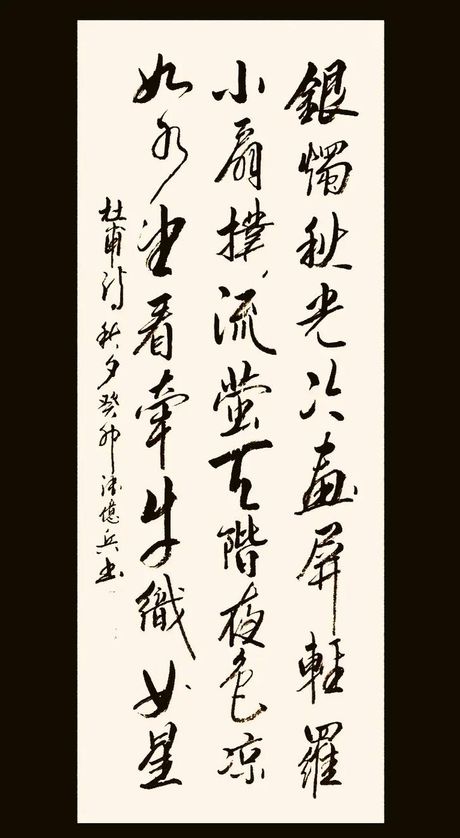 銀燭秋光冷畫屏輕羅
小扇撲流螢天階夜色凉
如水坐看牽牛織女星
杜甫詩秋夕癸卯億兵书